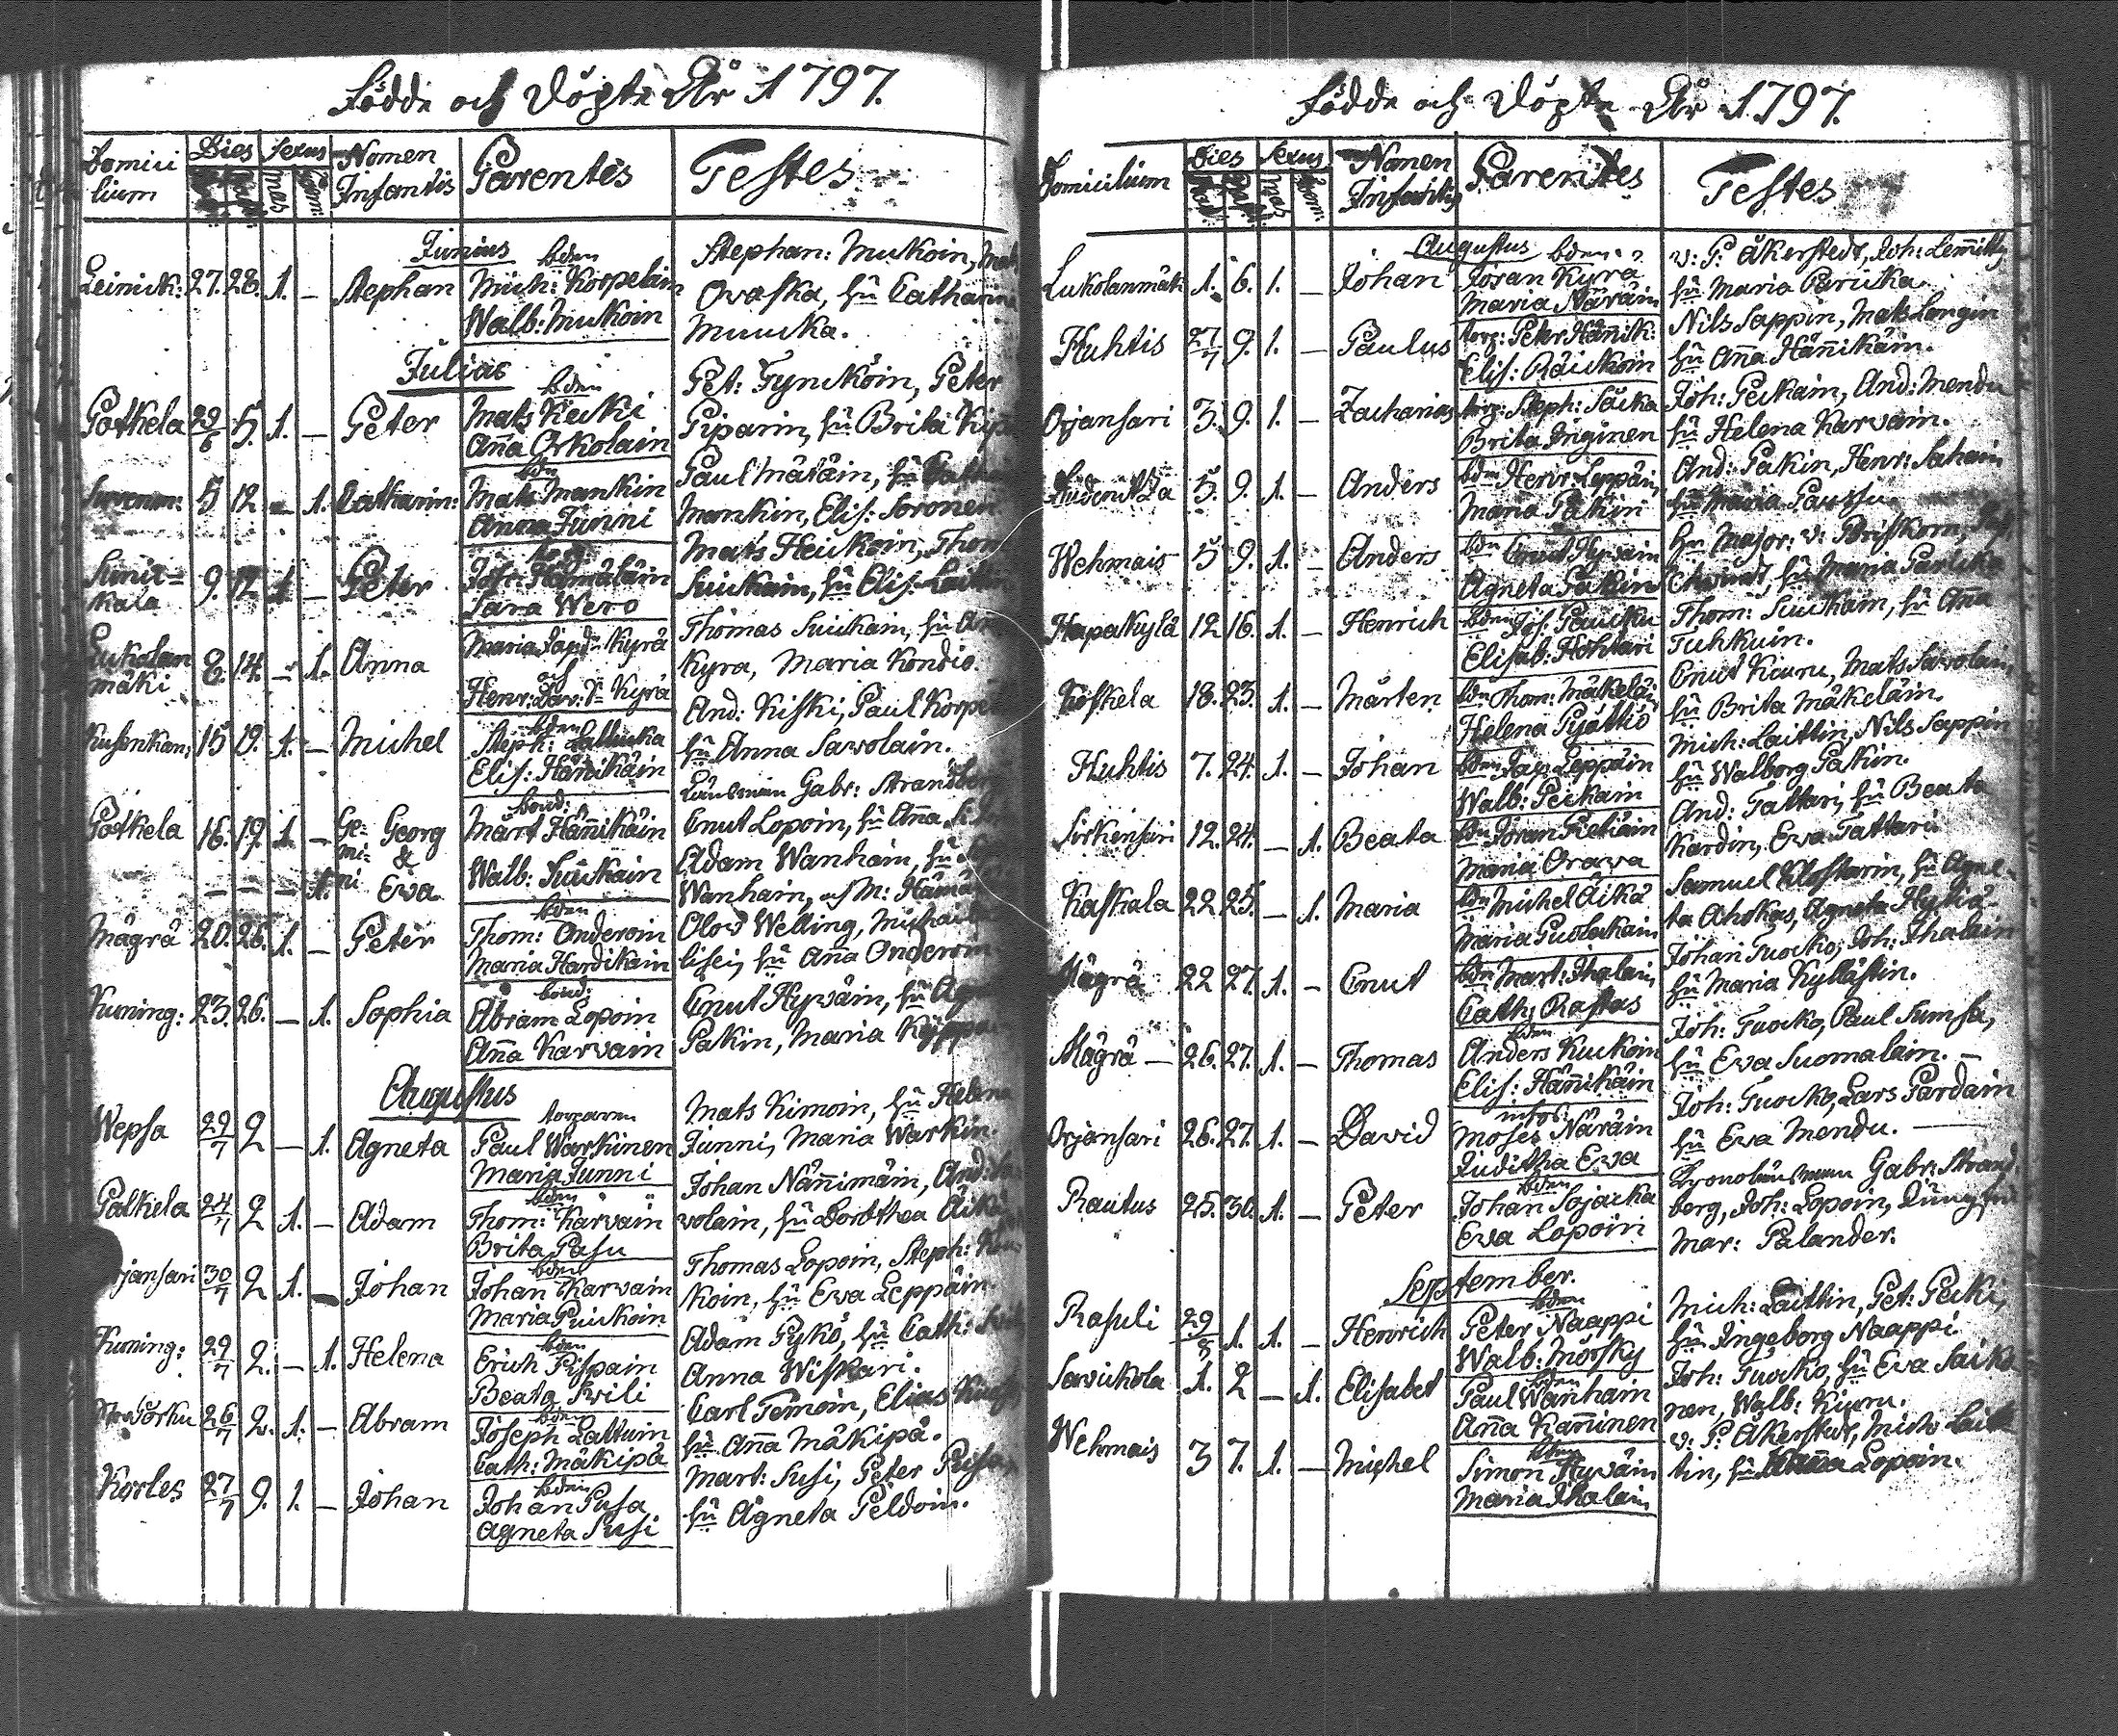 Födde och Döpte År 1797.
Domici
lium
Dies
Sexus
Mas
Nomen
Infantis
Parentes
Testes
Junius
Leinick: 27. 28. 1. – Stephan
bden
Mich: Korpelain
Walb: Mukoin
Stephan: Mukoin,
Orafka, hu Catharina
Muucka.
Julius
Potkela 29/6 5. 1. – Peter
bden
Mats Kecki
Anna Orkolain
Pet: Tyncköin, Peter
Piparin, hu Brita
5 12 – 1. Catharin:
bdn
Mats Mankin
Anna Junni
Paul Mätäin, hu
Mankin, Elis: Soronen
kala 9. 12. 1. – Peter
Jos: Hämäläin
Sara Wero
Mats Heickoin, Thom
Suickain, hu Elis: Laittin
Lukolan
mäki 8. 14. – 1. Anna
Maria Kyrä
och
Henr: Kyrä
Thomas Suickain, hu
Kyra, Maria Kondio.
15 19. 1. – Michel
bden
Steph:
Elis: Hännikäin
And: Kiski, Paul Korpe
hu Anna Sawolain.
Potkela 16. 19. 1. – Ge- Georg
mi- &
ni Ewa
– – – 1.
bond:
Mårt Hännikäin
Walb: Suickain
Länsman Gabr: Strandberg
Cnut Lopoin, hu Anna
Adam Wanhain, hu
Wanhain, och M: Hämä
Mägrä 20. 26. 1. – Peter
bden
Thom: Onderoin
Maria Hardikain
Olov Welling, Michai
hu Ana Onderoin
Kuning: 23. 26. – 1. Sophia
bond:
Abram Lopoin
Anna Karvain
Cnut Hyväin, hu
Pakin, Maria Kyppa
Augustus
Wepsa 29/7 2 – 1. Agneta
torparen
Paul Warkinen
Maria Junni
Mats Kimoin, hu Helena
Junni, Maria Warkin.
Palkela 24/7 2 1. – Adam
bden
Thom: Karvain
Brita Pasu
Johan Nännimäin, And:
volain, hu Dorothea
30/7 2 1. – Johan
bden
Johan Karvain
Maria Puickoin
Thomas Lopoin, Steph:
koin, hu Ewa Leppäin.
Kuning: 29/7 2. – 1. Helena
bden
Erich Pispain
Beata Swili
Adam Pykö, hu Cath:
Anna Wiskari.
26/7 2. 1. – Abram
bdn
Joseph Lattuin
Cath: Mäkipä
Carl Temoin, Elias
hu Anna Mäkipä.
Korles 27/7 9. 1. – Johan
bden
Johan Pusa
Agneta Susi
Mart: Susi, Peter Pusa,
hu Agneta Peldoin.
Födde och Döpte År 1797.
Domicilium
Dies
Sexus
Mas
Nomen
Infantis
Parentes
Testes
Augustus
Lukolanmäki 1. 6. 1. – Johan
bden
Joran Kyrä
Maria Näräin
v: P: Åkerstedt, Joh: Lemitty
hu Maria Paricka.
Huhtis 27/7 9. 1. – Paulus
torp: Peter Hännik:
Elis: Räickoin
Nils Sappin, Mats Longin
hu Anna Hännikäin.
Orjansari 3. 9. 1. – Zacharias
torp: Steph: Säcka
Brita Inginen
Joh: Peckain, And: Mendu
hu Helena Karvain.
5. 9. 1. – Anders
bdn Henr: Leppäin,
Maria Pakin
And: Pakin, Henr: Sahain
hu Maria Paussu.
Wehmais 5 9. 1. – Anders
bdn Cnut Hyväin
Agneta Pakin
Hr Major: v: Briskorn,
hu Maria Paricka
Hapakylä 12 16. 1. – Henrich
bden Jos: Paucku
Elisab: Hohtari
Thom: Suickain, hu Anna
Tuhkuin.
Koskela 18. 23. 1. – Mårten
bdn Thom: Mäkeläi
Helena Pyättiö
Cnut Kiuru, Mats Sawolain,
hu Brita Mäkeläin.
Huhtis 7. 24. 1. – Johan
bden Jap: Leppäin
Walb: Peickain
Mich: Laittin, Nils Sappin
hu Walborg Pakin.
Sirkensari 12. 24. – 1. Beata
bdn Joran Pietiäin
Maria Orawa
And: Tattari, hu Beata
Kardin, Ewa Tattari.
Kaskala 22 25. – 1. Maria
bdn Michel Äikä
Maria Puolackain
Samuel Klostarin, hu Agne-
ta Ahokas, Agneta Hytiä
Mägrä 22 27. 1. – Cnut
bdn Mart: Ihalain,
Cath: Rastas
Johan Tuocko, Joh: Ihalain
hu Maria Kyllästin.
Mägrä – 26. 27. 1. – Thomas
bden
Anders Kuckoin
Elis: Hännikäin
Joh: Tuocko, Paul Sumsa,
hu Ewa Suomalain. –
Orjansari 26. 27. 1. – David
Moses Näräin
Juditha Ewa
Joh: Tuocko, Lars Pardain
hu Ewa Mendu. –
Rautus 25. 30. 1. – Peter
bden
Johan Sojacka
Ewa Lopoin
Kronolänsman Gabr: Strand-
berg, Joh: Lopoin,
Mar: Palander.
September.
Rasuli 29/8 1. 1. – Henrich
bden
Peter Naappi
Walb: Mörsky
Mich: Laittin, Pet: Pecki,
hu Ingeborg Naappi.
Savickola 1. 2 – 1. Elisabet
bden
Paul Wanhain
Anna Karhinen
Joh: Tuocko, hu Ewa Saicko
nen, Walb: Kiuru.
Wehmais 3 7. 1. – Michel
bden
Simon Hyväin
Maria Ihalain
v: P: Åkerstedt, Mich: Lait
tin, hu Anna Lopoin.